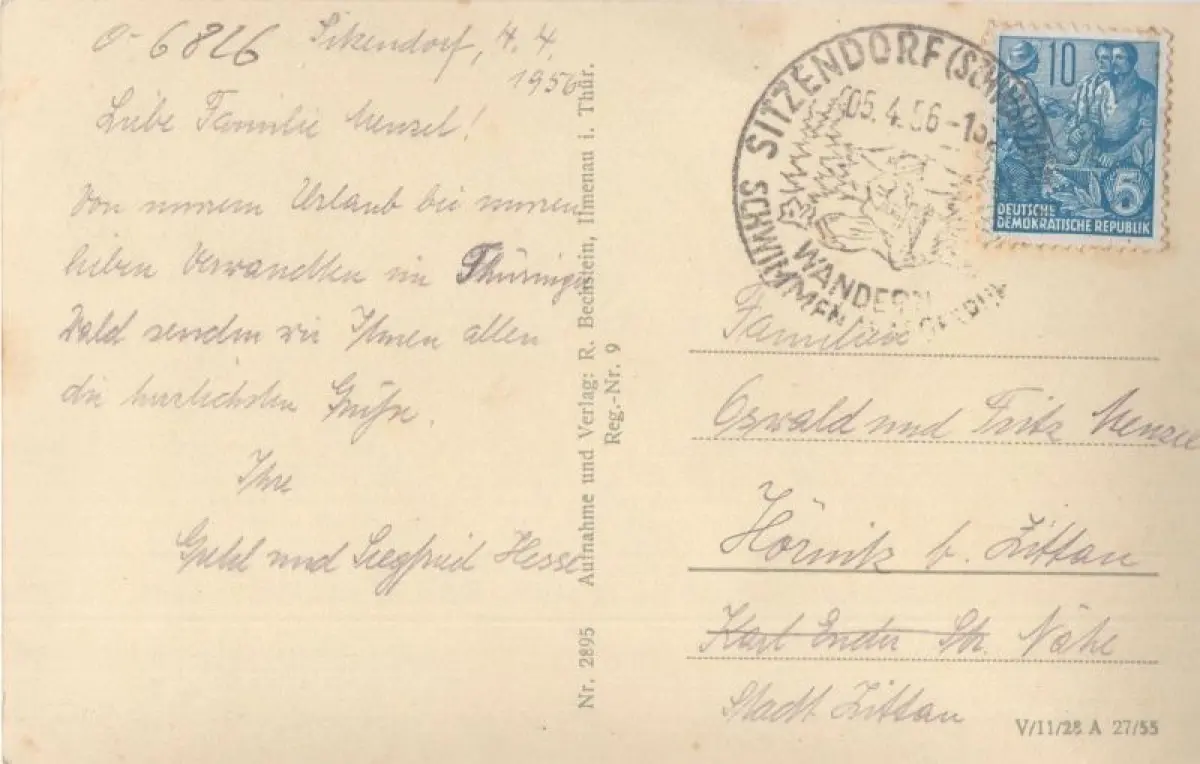 O-6826
Sitzendorf, 4.4.
1956
Liebe Familie Menzel!
Von unserem Urlaub bei unseren
lieben Verwandten im Thüringer
Wald senden wir Ihnen allen
die herzlichsten Grüße.
Ihre
Gretel und Siegfried Hesse
Nr. 2895 Aufnahme und Verlag: R. Bechstein, Ilmenau i. Thür.
Reg.-Nr. 9
SITZENDORF
05.4.56
SCHWIMMEN
WANDERN
10
5
DEUTSCHE
DEMOKRATISCHE REPUBLIK
Familien
Oswald und Fritz Menzel
Hörnitz b. Zittau
Karl Ender Str. Nähe
Stadt Zittau
V/11/28 A 27/55